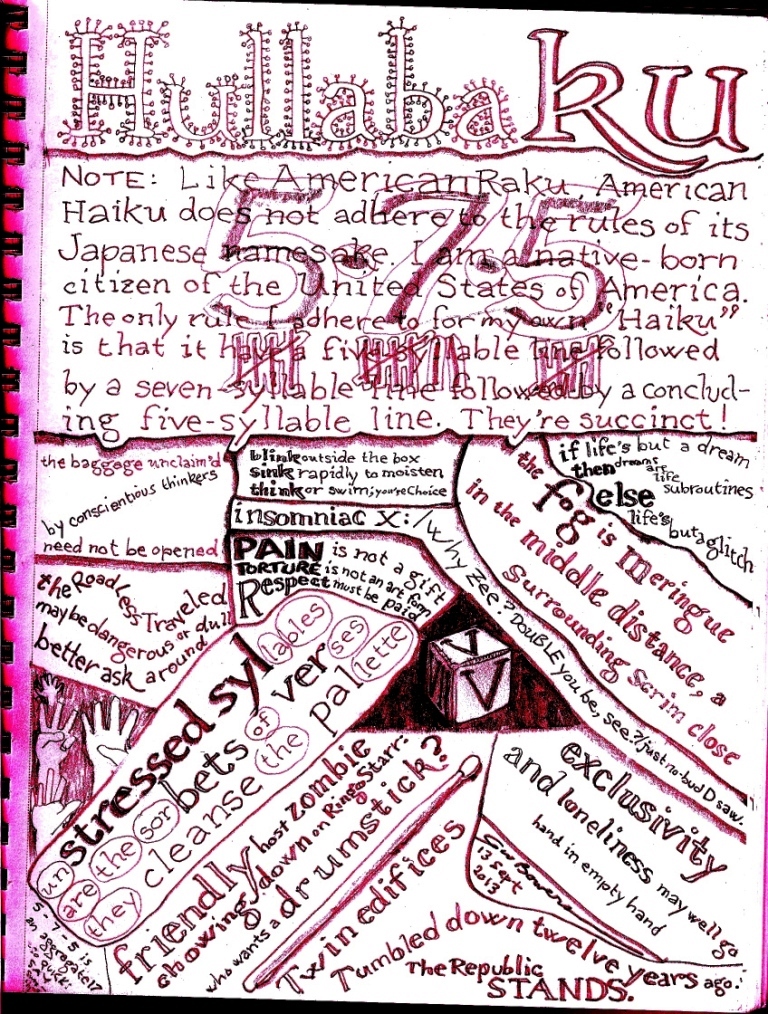 Hullabaku
NOTE: Like American Raku, American
Haiku does not adhere to the rules of its
Japanese namesake. I am a native-born
citizen of the United States of America.
The only rule I adhere to for my own "Haiku"
is that it have a five-syllable line followed
by a seven-syllable line followed by a conclud-
ing five-syllable line. They're succinct!
5·7·5
the baggage unclaim'd
by conscientious thinkers
need not be opened
blink outside the box
sink rapidly to moisten
think or swim; you're Choice
if life's but a dream
then dreams are life subroutines
else life's but a glitch
the fog is meringue
in the middle distance, a
Surrounding Scrim close
insomniac X:/Why Zee? DOUBLE You be, see?/just no-bud D saw.
PAIN is not a gift
TORTURE is not an art form
Respect must be paid
the Road Less Traveled
may be dangerous or dull
better ask around
unstressed syllables
are the sorbets of verses
they cleanse the pallette
V
V
friendly host zombie
chowing down on Ringo Starr:
who wants a drumstick?
exclusivity
and loneliness may well go
hand in empty hand
13 Sept
2013
Twin edifices
Tumbled down twelve years ago.
The Republic STANDS.
5-7-5 is
an aggregate 17